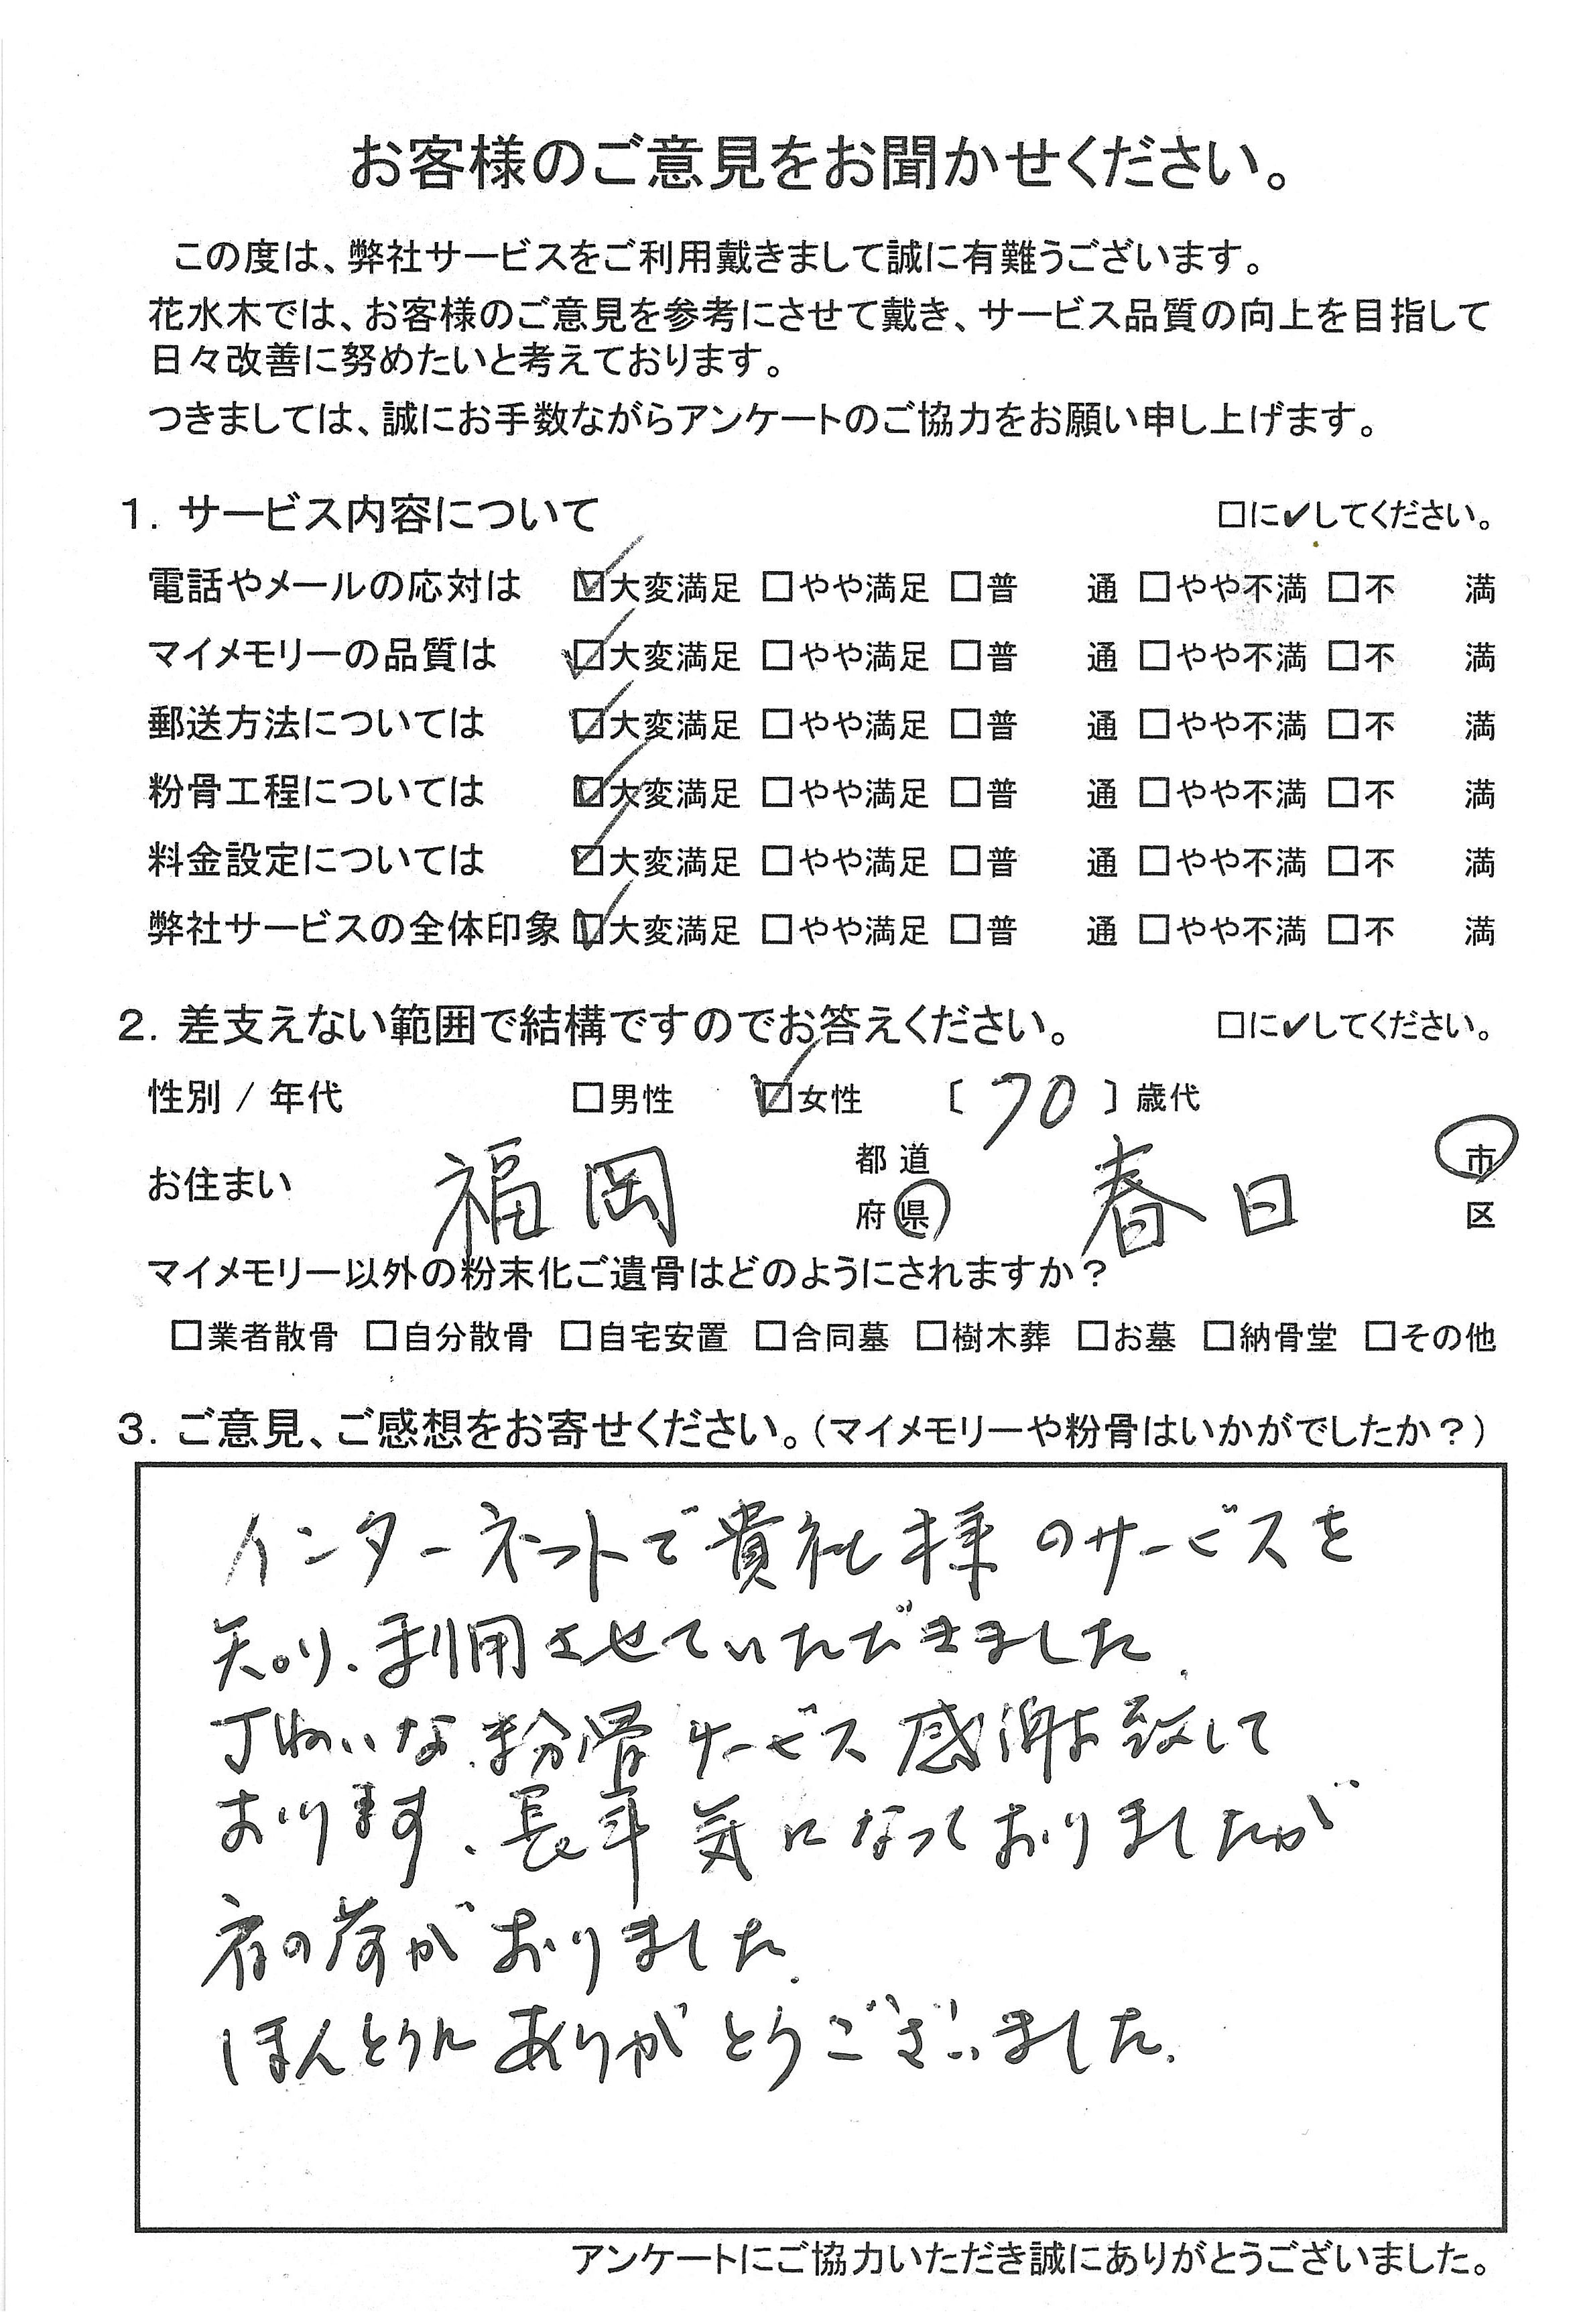 お客様のご意見をお聞かせください。
この度は、弊社サービスをご利用戴きまして誠に有難うございます。
花水木では、お客様のご意見を参考にさせて戴き、サービス品質の向上を目指して
日々改善に努めたいと考えております。
つきましては、誠にお手数ながらアンケートのご協力をお願い申し上げます。
1. サービス内容について □に✔してください。
電話やメールの応対は ☑大変満足 □やや満足 □普 通 □やや不満 □不 満
マイメモリーの品質は ☑大変満足 □やや満足 □普 通 □やや不満 □不 満
郵送方法については ☑大変満足 □やや満足 □普 通 □やや不満 □不 満
粉骨工程については ☑大変満足 □やや満足 □普 通 □やや不満 □不 満
料金設定については ☑大変満足 □やや満足 □普 通 □やや不満 □不 満
弊社サービスの全体印象 ☑大変満足 □やや満足 □普 通 □やや不満 □不 満
2. 差支えない範囲で結構ですのでお答えください。 □に✔してください。
性別 / 年代 □男性 ☑女性 〔 70 〕歳代
お住まい 福岡 都道府県 春日 市区
マイメモリー以外の粉末化ご遺骨はどのようにされますか？
□業者散骨 □自分散骨 □自宅安置 □合同墓 □樹木葬 □お墓 □納骨堂 □その他
3. ご意見、ご感想をお寄せください。（マイメモリーや粉骨はいかがでしたか？）
インターネットで貴社様のサービスを
知り、利用させていただきました。
丁ねいな粉骨サービス感謝致して
おります、長年気になっておりましたが
肩の荷がおりました。
ほんとうにありがとうございました。
アンケートにご協力いただき誠にありがとうございました。